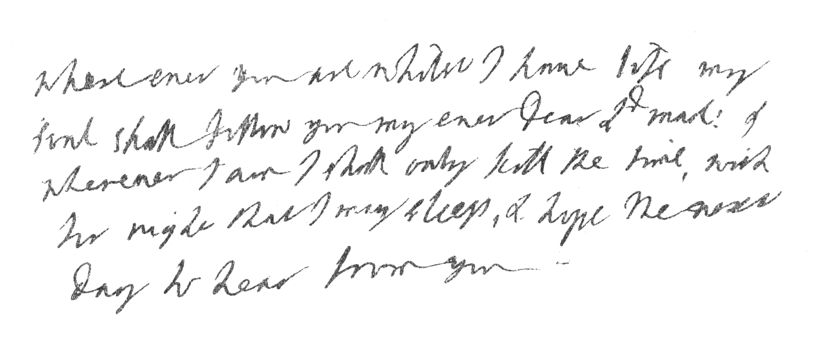 where ever you are whilst I have life my
soul shall follow you my ever Dear Ld mar: &
wherever I am I shall only kill the time, wish
for night that I may sleep, & hope the next
Day to hear from you